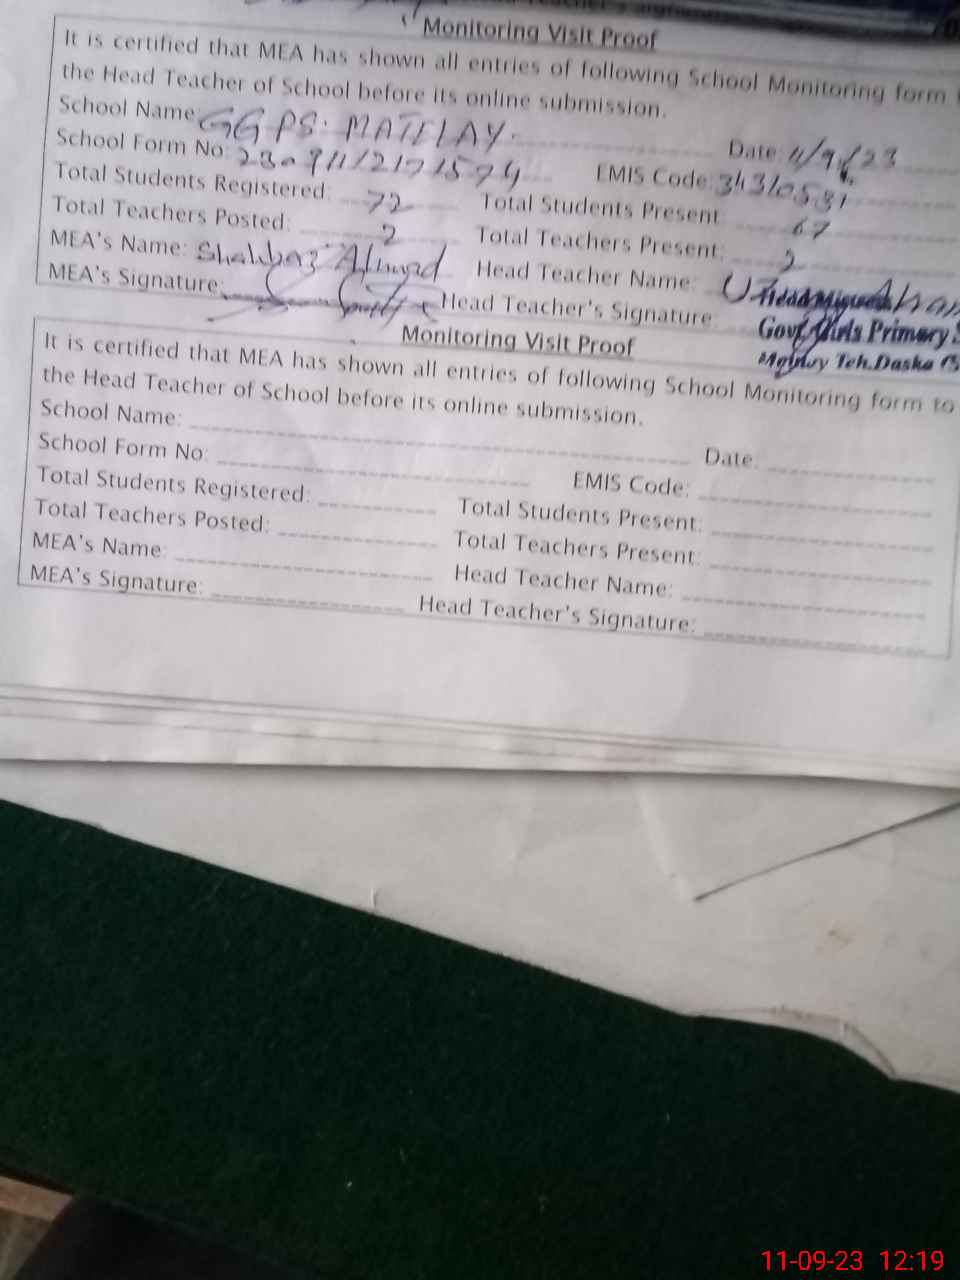 Monitoring Visit Proof
It is certified that MEA has shown all entries of following School Monitoring form
the Head Teacher of School before its online submission.
School Name: GGPS. MATELAY. Date: 11/9/23
School Form No: EMIS Code: 34310531
Total Students Registered: 72 Total Students Present: 67
Total Teachers Posted: 2 Total Teachers Present: 2
MEA's Name: Shahbaz Ahmad Head Teacher Name:
MEA's Signature: Head Teacher's Signature:
Govt. Girls Primary
Teh. Daska
Monitoring Visit Proof
It is certified that MEA has shown all entries of following School Monitoring form to
the Head Teacher of School before its online submission.
School Name: Date:
School Form No: EMIS Code:
Total Students Registered: Total Students Present:
Total Teachers Posted: Total Teachers Present:
MEA's Name: Head Teacher Name:
MEA's Signature: Head Teacher's Signature:
11-09-23 12:19